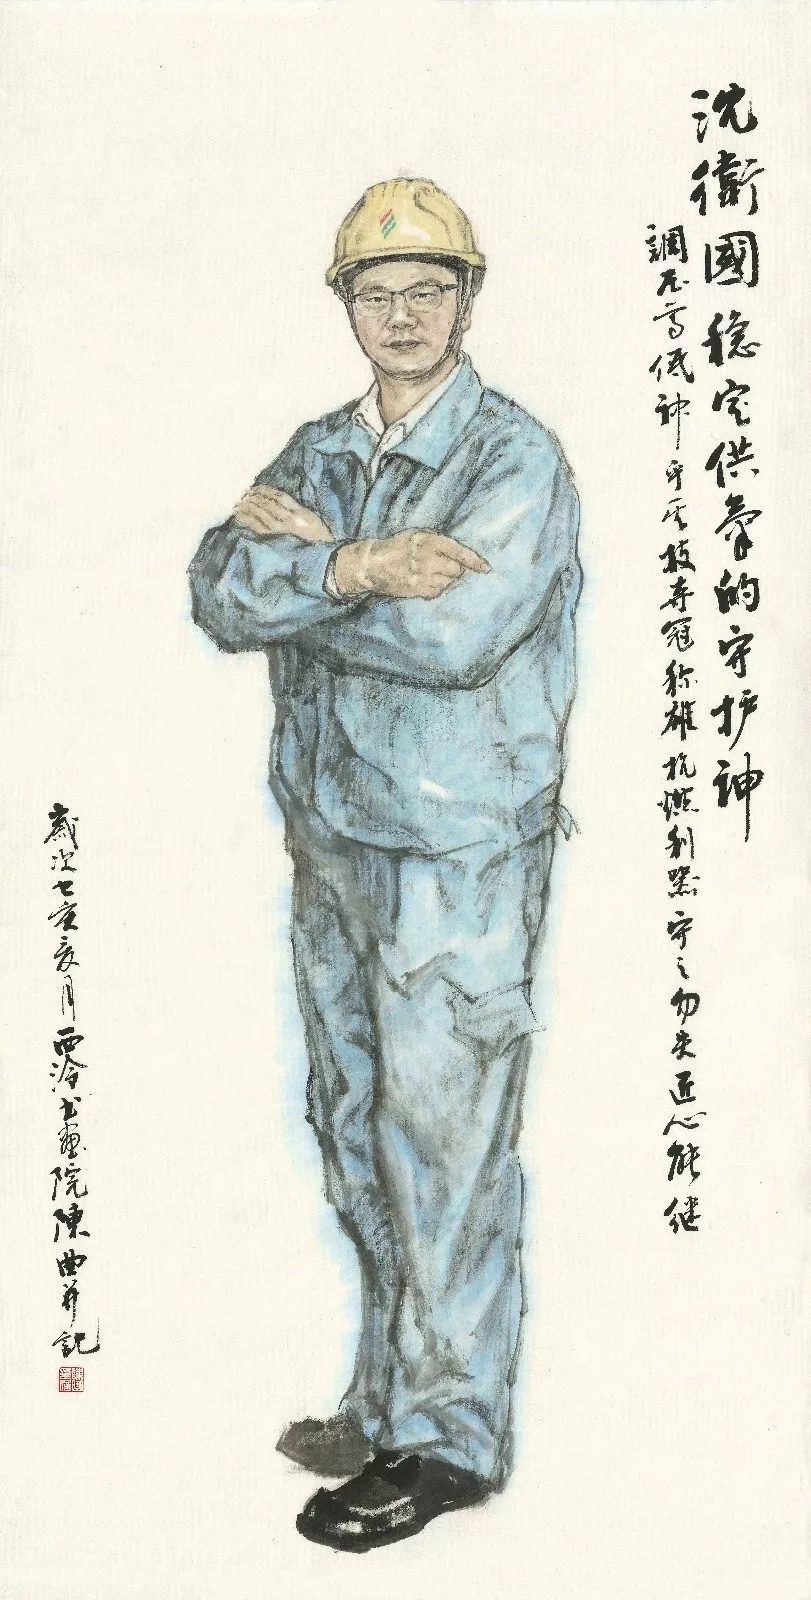 沈衛國稳定供氣的守护神
調压高低神乎其技夺冠称雄抗燃利器守之勿失匠心能继
歲次己亥夏月西泠书畫院陳曲并記